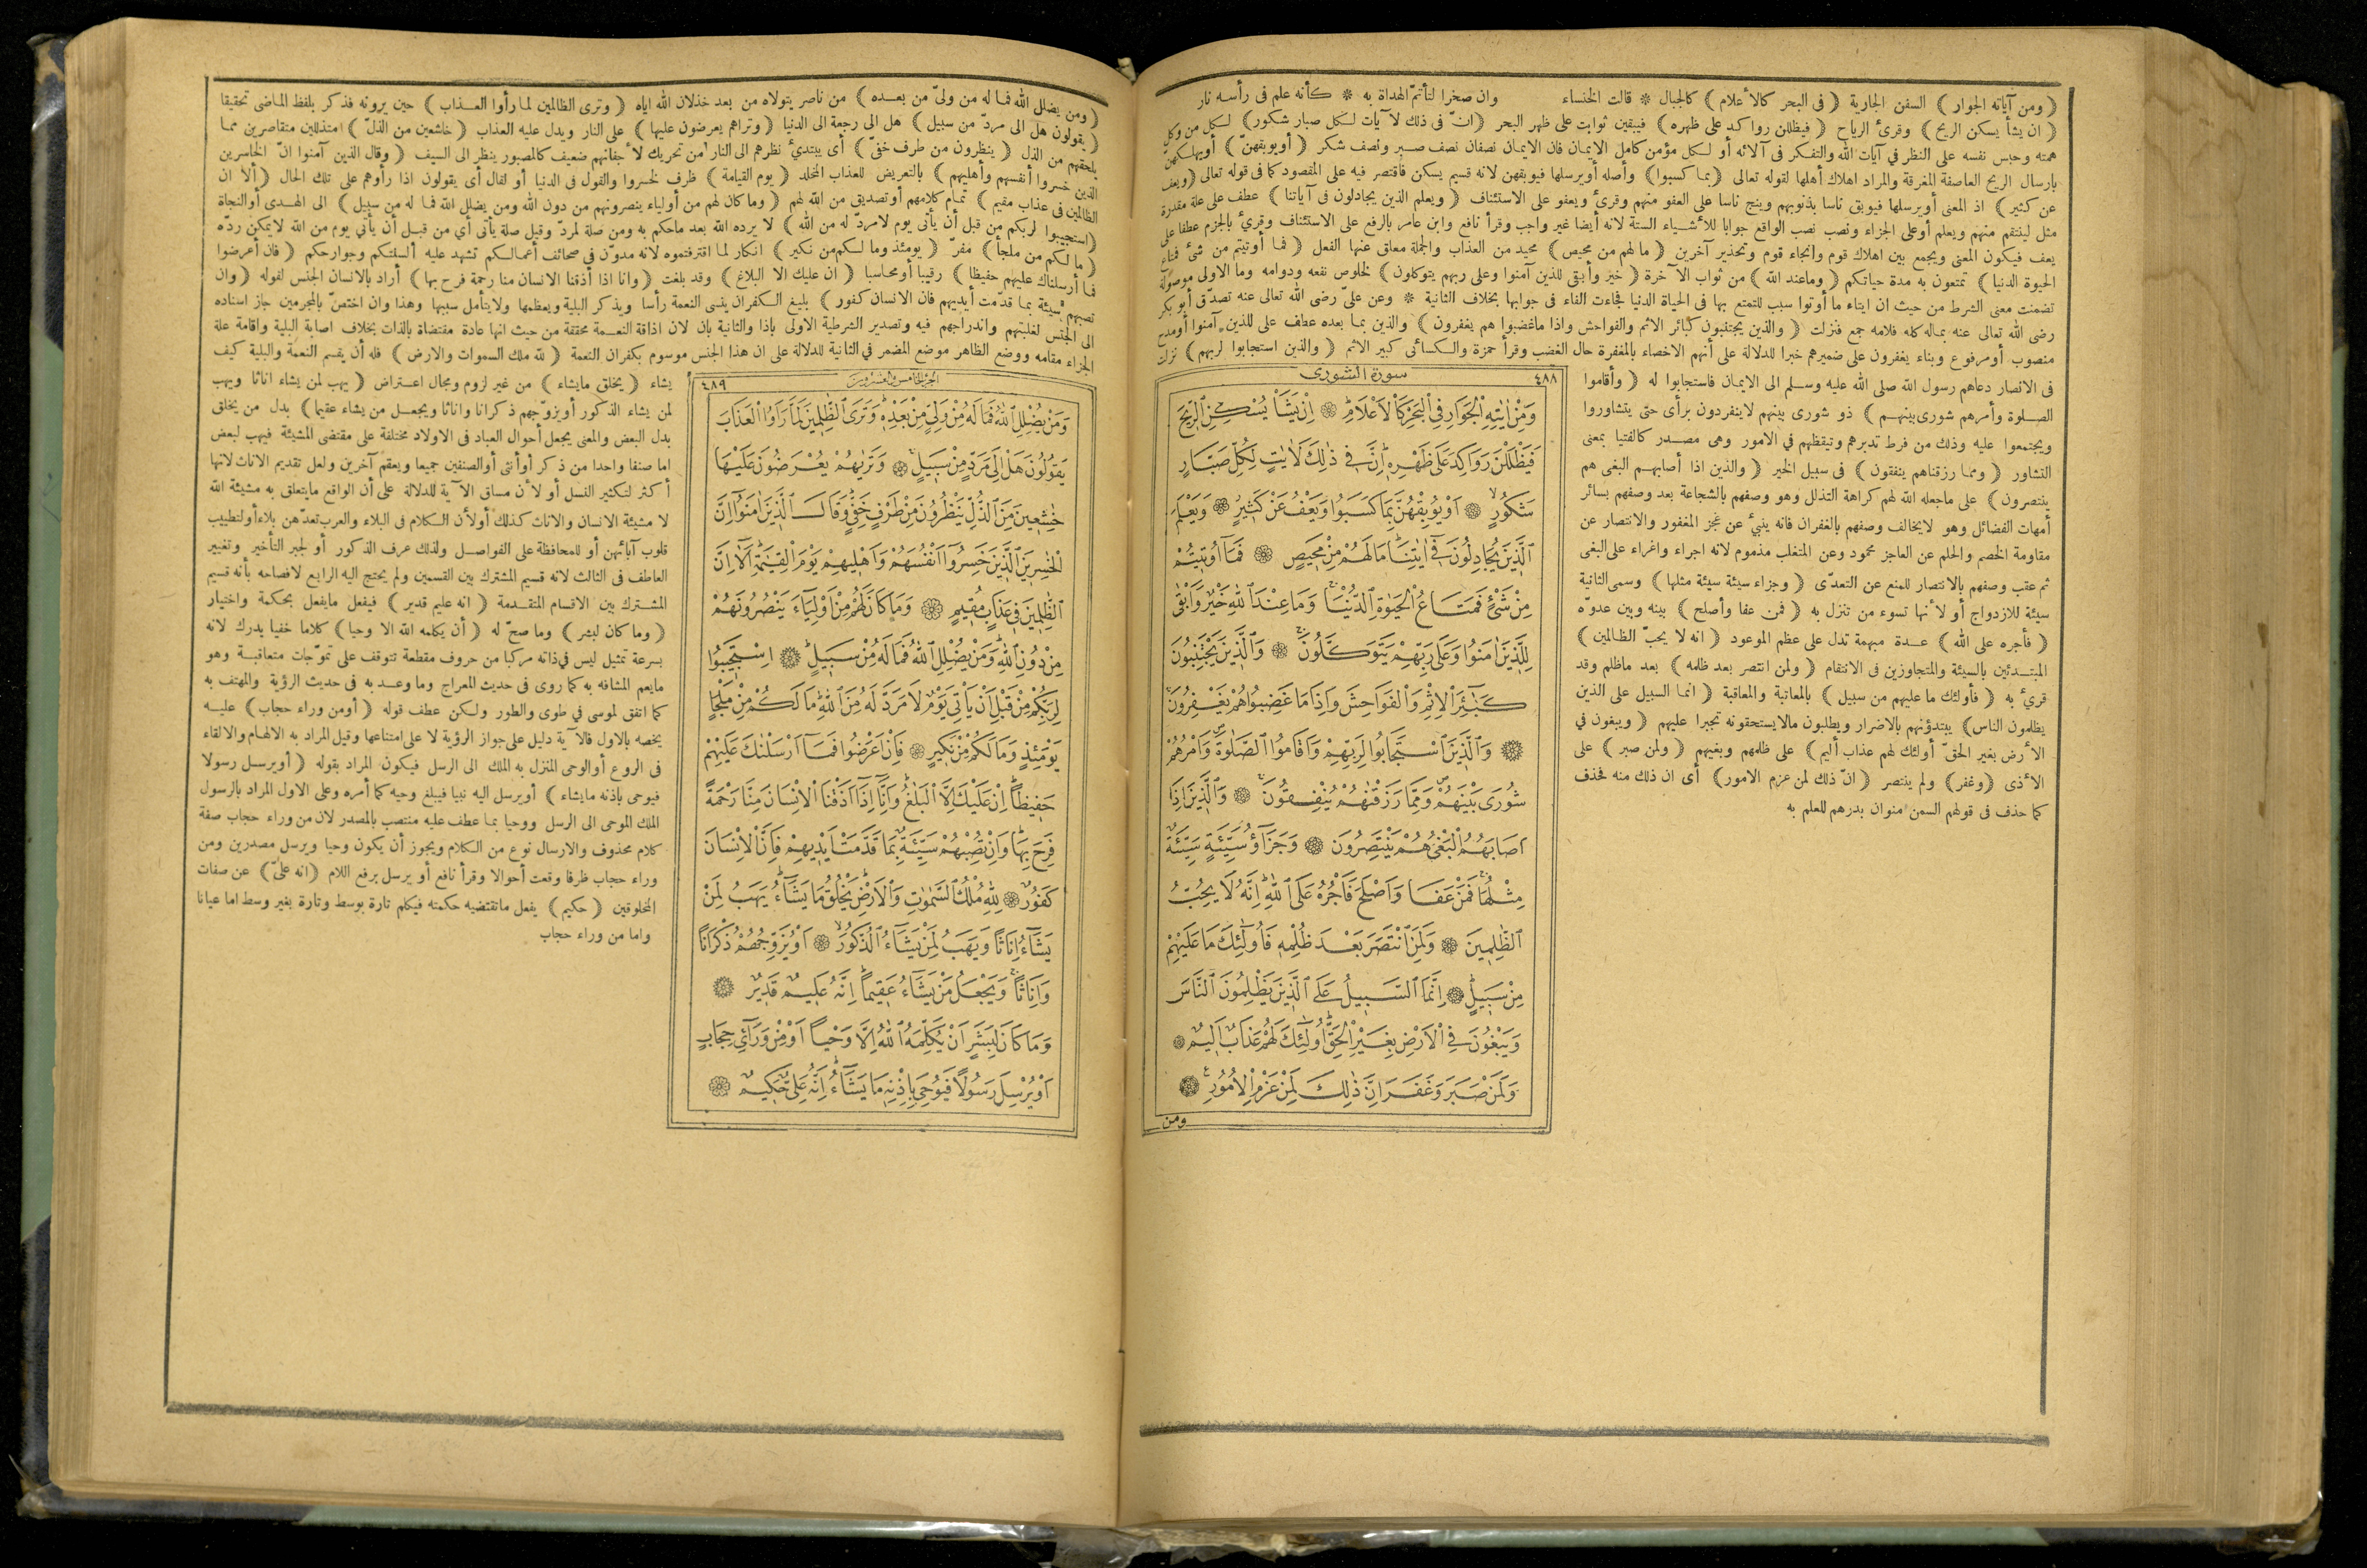 ﴿ ومن آياته الجوار ﴾ السفن الجارية ﴿ فى البحر كالأعلام ﴾ كالجبال * قالت الخنساء وان صخرا لتأتمّ الهداة به * كأنه علم فى رأسه نار
﴿ ان يشأ يسكن الريح ﴾ وقرئ الرياح ﴿ فيظللن رواكد على ظهره ﴾ فيبقين ثوابت على ظهر البحر ﴿ انّ فى ذلك لآيات لكل صبار شكور ﴾ لكل من وكل
همته وحبس نفسه على النظر في آيات الله والتفكر فى آلائه أو لكل مؤمن كامل الايمان فان الايمان نصفان نصف صبر ونصف شكر ﴿ أو يوبقهنّ ﴾ أو يهلكهن
بارسال الريح العاصفة المغرقة والمراد اهلاك أهلها لقوله تعالى ﴿ بما كسبوا ﴾ وأصله أو يرسلها فيوبقهن لانه قسيم يسكن فاقتصر فيه على المقصود كما فى قوله تعالى ﴿ ويعف
عن كثير ﴾ اذ المعنى أو يرسلها فيوبق ناسا بذنوبهم وينج ناسا على العفو منهم وقرئ ويعفو على الاستئناف ﴿ ويعلم الذين يجادلون فى آياتنا ﴾ عطف على علة مقدرة
مثل لينتقم منهم ويعلم أو على الجزاء ونصب نصب الواقع جوابا للأشياء الستة لانه أيضا غير واجب وقرأ نافع وابن عامر بالرفع على الاستئناف وقرئ بالجزم عطفا على
يعف فيكون المعنى ويجمع بين اهلاك قوم وانجاء قوم وتحذير آخرين ﴿ ما لهم من محيص ﴾ محيد من العذاب والجملة معلق عنها الفعل ﴿ فما أوتيتم من شئ فمتاع
الحيوة الدنيا ﴾ تمتعون به مدة حياتكم ﴿ وما عند الله ﴾ من ثواب الآخرة ﴿ خير وأبقى للذين آمنوا وعلى ربهم يتوكلون ﴾ لخلوص نفعه ودوامه وما الاولى موصولة
تضمنت معنى الشرط من حيث ان ايتاء ما أوتوا سبب للتمتع بها فى الحياة الدنيا فجاءت الفاء فى جوابها بخلاف الثانية * وعن علىّ رضى الله تعالى عنه تصدّق أبو بكر
رضى الله تعالى عنه بماله كله فلامه جمع فنزلت ﴿ والذين يجتنبون كبائر الاثم والفواحش واذا ما غضبوا هم يغفرون ﴾ والذين بما بعده عطف على للذين آمنوا أو مدح
منصوب أو مرفوع وبناء يغفرون على ضميرهم خبرا للدلالة على أنهم الاخصاء بالمغفرة حال الغضب وقرأ حمزة والكسائى كبير الاثم ﴿ والذين استجابوا لربهم ﴾ نزلت
فى الانصار دعاهم رسول الله صلى الله عليه وسلم الى الايمان فاستجابوا له ﴿ وأقاموا
الصلوة وأمرهم شورى بينهم ﴾ ذو شورى بينهم لا ينفردون برأى حتى يتشاوروا
ويجتمعوا عليه وذلك من فرط تدبرهم وتيقظهم في الامور وهى مصدر كالفتيا بمعنى
التشاور ﴿ ومما رزقناهم ينفقون ﴾ فى سبيل الخير ﴿ والذين اذا أصابهم البغى هم
ينتصرون ﴾ على ما جعله الله لهم كراهة التذلل وهو وصفهم بالشجاعة بعد وصفهم بسائر
أمهات الفضائل وهو لا يخالف وصفهم بالغفران فانه ينبئ عن عجز المغفور والانتصار عن
مقاومة الخصم والحلم عن العاجز محمود وعن المتغلب مذموم لانه اجراء واغراء على البغى
ثم عقب وصفهم بالانتصار للمنع عن التعدّى ﴿ وجزاء سيئة سيئة مثلها ﴾ وسمى الثانية
سيئة للازدواج أو لأنها تسوء من تنزل به ﴿ فمن عفا وأصلح ﴾ بينه وبين عدوّه
﴿ فأجره على الله ﴾ عدة مبهمة تدل على عظم الموعود ﴿ انه لا يحبّ الظالمين ﴾
المبتدئين بالسيئة والمتجاوزين فى الانتقام ﴿ ولمن انتصر بعد ظلمه ﴾ بعد ما ظلم وقد
قرئ به ﴿ فأولئك ما عليهم من سبيل ﴾ بالمعاتبة والمعاقبة ﴿ انما السبيل على الذين
يظلمون الناس ﴾ يبتدؤنهم بالاضرار ويطلبون ما لا يستحقونه تجبرا عليهم ﴿ ويبغون في
الأرض بغير الحقّ أولئك لهم عذاب أليم ﴾ على ظلمهم وبغيهم ﴿ ولمن صبر ﴾ على
الأذى ﴿ وغفر ﴾ ولم ينتصر ﴿ انّ ذلك لمن عزم الامور ﴾ أى ان ذلك منه فحذف
كما حذف فى قولهم السمن منوان بدرهم للعلم به
٤٨٨ سورة الشورى
وَمِنْ اٰيَاتِهِ الْجَوَارِ فِي الْبَحْرِ كَالْاَعْلَامِ ۞ اِنْ يَشَأْ يُسْكِنِ الرِّيحَ
فَيَظْلَلْنَ رَوَاكِدَ عَلٰى ظَهْرِهِ اِنَّ فِي ذٰلِكَ لَاٰيَاتٍ لِكُلِّ صَبَّارٍ
شَكُورٍ ۞ اَوْ يُوبِقْهُنَّ بِمَا كَسَبُوا وَيَعْفُ عَنْ كَثِيرٍ ۞ وَيَعْلَمَ
الَّذِينَ يُجَادِلُونَ فِي اٰيَاتِنَا مَا لَهُمْ مِنْ مَحِيصٍ ۞ فَمَا اُوتِيتُمْ
مِنْ شَيْءٍ فَمَتَاعُ الْحَيٰوةِ الدُّنْيَا وَمَا عِنْدَ اللهِ خَيْرٌ وَاَبْقٰى
لِلَّذِينَ اٰمَنُوا وَعَلٰى رَبِّهِمْ يَتَوَكَّلُونَ ۞ وَالَّذِينَ يَجْتَنِبُونَ
كَبَائِرَ الْاِثْمِ وَالْفَوَاحِشَ وَاِذَا مَا غَضِبُوا هُمْ يَغْفِرُونَ
۞ وَالَّذِينَ اسْتَجَابُوا لِرَبِّهِمْ وَاَقَامُوا الصَّلٰوةَ وَاَمْرُهُمْ
شُورٰى بَيْنَهُمْ وَمِمَّا رَزَقْنَاهُمْ يُنْفِقُونَ ۞ وَالَّذِينَ اِذَا
اَصَابَهُمُ الْبَغْيُ هُمْ يَنْتَصِرُونَ ۞ وَجَزٰٓؤُا سَيِّئَةٍ سَيِّئَةٌ
مِثْلُهَا فَمَنْ عَفَا وَاَصْلَحَ فَاَجْرُهُ عَلَى اللهِ اِنَّهُ لَا يُحِبُّ
الظَّالِمِينَ ۞ وَلَمَنِ انْتَصَرَ بَعْدَ ظُلْمِهِ فَاُولٰئِكَ مَا عَلَيْهِمْ
مِنْ سَبِيلٍ ۞ اِنَّمَا السَّبِيلُ عَلَى الَّذِينَ يَظْلِمُونَ النَّاسَ
وَيَبْغُونَ فِي الْاَرْضِ بِغَيْرِ الْحَقِّ اُولٰئِكَ لَهُمْ عَذَابٌ اَلِيمٌ ۞
وَلَمَنْ صَبَرَ وَغَفَرَ اِنَّ ذٰلِكَ لَمِنْ عَزْمِ الْاُمُورِ ۞
ومن
﴿ ومن يضلل الله فما له من ولىّ من بعده ﴾ من ناصر يتولاه من بعد خذلان الله اياه ﴿ وترى الظالمين لما رأوا العذاب ﴾ حين يرونه فذكر بلفظ الماضى تحقيقا
﴿ يقولون هل الى مردّ من سبيل ﴾ هل الى رجعة الى الدنيا ﴿ وتراهم يعرضون عليها ﴾ على النار ويدل عليه العذاب ﴿ خاشعين من الذلّ ﴾ متذللين متقاصرين مما
يلحقهم من الذل ﴿ ينظرون من طرف خفىّ ﴾ أى يبتدئ نظرهم الى النار من تحريك لأجفانهم ضعيف كالمصبور ينظر الى السيف ﴿ وقال الذين آمنوا انّ الخاسرين
الذين خسروا أنفسهم وأهليهم ﴾ بالتعريض للعذاب المخلد ﴿ يوم القيامة ﴾ ظرف لخسروا والقول فى الدنيا أو لقال أى يقولون اذا رأوهم على تلك الحال ﴿ ألا ان
الظالمين فى عذاب مقيم ﴾ تمام كلامهم أو تصديق من الله لهم ﴿ وما كان لهم من أولياء ينصرونهم من دون الله ومن يضلل الله فما له من سبيل ﴾ الى الهدى أو النجاة
﴿ استجيبوا لربكم من قبل أن يأتى يوم لا مردّ له من الله ﴾ لا يرده الله بعد ما حكم به ومن صلة لمردّ وقيل صلة يأتى أي من قبل أن يأتي يوم من الله لا يمكن ردّه
﴿ ما لكم من ملجأ ﴾ مفرّ ﴿ يومئذ وما لكم من نكير ﴾ انكار لما اقترفتموه لانه مدوّن في صحائف أعمالكم تشهد عليه ألسنتكم وجوارحكم ﴿ فان أعرضوا
فما أرسلناك عليهم حفيظا ﴾ رقيبا أو محاسبا ﴿ ان عليك الا البلاغ ﴾ وقد بلغت ﴿ وانا اذا أذقنا الانسان منا رحمة فرح بها ﴾ أراد بالانسان الجنس لقوله ﴿ وان
تصبهم سيئة بما قدّمت أيديهم فان الانسان كفور ﴾ بليغ الكفران ينسى النعمة رأسا ويذكر البلية ويعظمها ولا يتأمل سببها وهذا وان اختصّ بالمجرمين جاز اسناده
الى الجنس لغلبتهم واندراجهم فيه وتصدير الشرطية الاولى باذا والثانية بان لان اذاقة النعمة محققة من حيث انها عادة مقتضاة بالذات بخلاف اصابة البلية واقامة علة
الجزاء مقامه ووضع الظاهر موضع المضمر في الثانية للدلالة على ان هذا الجنس موسوم بكفران النعمة ﴿ لله ملك السموات والارض ﴾ فله أن يقسم النعمة والبلية كيف
يشاء ﴿ يخلق ما يشاء ﴾ من غير لزوم ومجال اعتراض ﴿ يهب لمن يشاء اناثا ويهب
لمن يشاء الذكور أو يزوّجهم ذكرانا واناثا ويجعل من يشاء عقيما ﴾ بدل من يخلق
بدل البعض والمعنى يجعل أحوال العباد فى الاولاد مختلفة على مقتضى المشيئة فيهب لبعض
اما صنفا واحدا من ذكر أو أنثى أو الصنفين جميعا ويعقم آخرين ولعل تقديم الاناث لانها
أكثر لتكثير النسل أو لأن مساق الآية للدلالة على أن الواقع ما يتعلق به مشيئة الله
لا مشيئة الانسان والاناث كذلك أو لأن الكلام فى البلاء والعرب تعدّهن بلاء أو لتطييب
قلوب آبائهن أو للمحافظة على الفواصل ولذلك عرف الذكور أو لجبر التأخير وتغيير
العاطف فى الثالث لانه قسيم المشترك بين القسمين ولم يحتج اليه الرابع لافصاحه بأنه قسيم
المشترك بين الاقسام المتقدمة ﴿ انه عليم قدير ﴾ فيفعل ما يفعل بحكمة واختيار
﴿ وما كان لبشر ﴾ وما صحّ له ﴿ أن يكلمه الله الا وحيا ﴾ كلاما خفيا يدرك لانه
بسرعة تمثيل ليس في ذاته مركبا من حروف مقطعة تتوقف على تموّجات متعاقبة وهو
ما يعم المشافه به كما روى فى حديث المعراج وما وعد به فى حديث الرؤية والمهتف به
كما اتفق لموسى في طوى والطور ولكن عطف قوله ﴿ أو من وراء حجاب ﴾ عليه
يخصه بالاول فالآية دليل على جواز الرؤية لا على امتناعها وقيل المراد به الالهام والالقاء
فى الروع أو الوحى المنزل به الملك الى الرسل فيكون المراد بقوله ﴿ أو يرسل رسولا
فيوحى باذنه ما يشاء ﴾ أو يرسل اليه نبيا فيبلغ وحيه كما أمره وعلى الاول المراد بالرسول
الملك الموحى الى الرسل ووحيا بما عطف عليه منتصب بالمصدر لان من وراء حجاب صفة
كلام محذوف والارسال نوع من الكلام ويجوز أن يكون وحيا ويرسل مصدرين ومن
وراء حجاب ظرفا وقعت أحوالا وقرأ نافع أو يرسل برفع اللام ﴿ انه علىّ ﴾ عن صفات
المخلوقين ﴿ حكيم ﴾ يفعل ما تقتضيه حكمته فيكلم تارة بوسط وتارة بغير وسط اما عيانا
واما من وراء حجاب
الجزء الخامس والعشرون ٤٨٩
وَمَنْ يُضْلِلِ اللهُ فَمَا لَهُ مِنْ وَلِيٍّ مِنْ بَعْدِهِ وَتَرَى الظَّالِمِينَ لَمَّا رَاَوُا الْعَذَابَ
يَقُولُونَ هَلْ اِلٰى مَرَدٍّ مِنْ سَبِيلٍ ۞ وَتَرٰيهُمْ يُعْرَضُونَ عَلَيْهَا
خَاشِعِينَ مِنَ الذُّلِّ يَنْظُرُونَ مِنْ طَرْفٍ خَفِيٍّ وَقَالَ الَّذِينَ اٰمَنُوا اِنَّ
الْخَاسِرِينَ الَّذِينَ خَسِرُوا اَنْفُسَهُمْ وَاَهْلِيهِمْ يَوْمَ الْقِيٰمَةِ اَلَا اِنَّ
الظَّالِمِينَ فِي عَذَابٍ مُقِيمٍ ۞ وَمَا كَانَ لَهُمْ مِنْ اَوْلِيَاءَ يَنْصُرُونَهُمْ
مِنْ دُونِ اللهِ وَمَنْ يُضْلِلِ اللهُ فَمَا لَهُ مِنْ سَبِيلٍ ۞ اِسْتَجِيبُوا
لِرَبِّكُمْ مِنْ قَبْلِ اَنْ يَأْتِيَ يَوْمٌ لَا مَرَدَّ لَهُ مِنَ اللهِ مَا لَكُمْ مِنْ مَلْجَأٍ
يَوْمَئِذٍ وَمَا لَكُمْ مِنْ نَكِيرٍ ۞ فَاِنْ اَعْرَضُوا فَمَا اَرْسَلْنَاكَ عَلَيْهِمْ
حَفِيظًا اِنْ عَلَيْكَ اِلَّا الْبَلَاغُ وَاِنَّا اِذَا اَذَقْنَا الْاِنْسَانَ مِنَّا رَحْمَةً
فَرِحَ بِهَا وَاِنْ تُصِبْهُمْ سَيِّئَةٌ بِمَا قَدَّمَتْ اَيْدِيهِمْ فَاِنَّ الْاِنْسَانَ
كَفُورٌ ۞ لِلهِ مُلْكُ السَّمٰوَاتِ وَالْاَرْضِ يَخْلُقُ مَا يَشَاءُ يَهَبُ لِمَنْ
يَشَاءُ اِنَاثًا وَيَهَبُ لِمَنْ يَشَاءُ الذُّكُورَ ۞ اَوْ يُزَوِّجُهُمْ ذُكْرَانًا
وَاِنَاثًا وَيَجْعَلُ مَنْ يَشَاءُ عَقِيمًا اِنَّهُ عَلِيمٌ قَدِيرٌ ۞
وَمَا كَانَ لِبَشَرٍ اَنْ يُكَلِّمَهُ اللهُ اِلَّا وَحْيًا اَوْ مِنْ وَرَائِ حِجَابٍ
اَوْ يُرْسِلَ رَسُولًا فَيُوحِيَ بِاِذْنِهِ مَا يَشَاءُ اِنَّهُ عَلِيٌّ حَكِيمٌ ۞